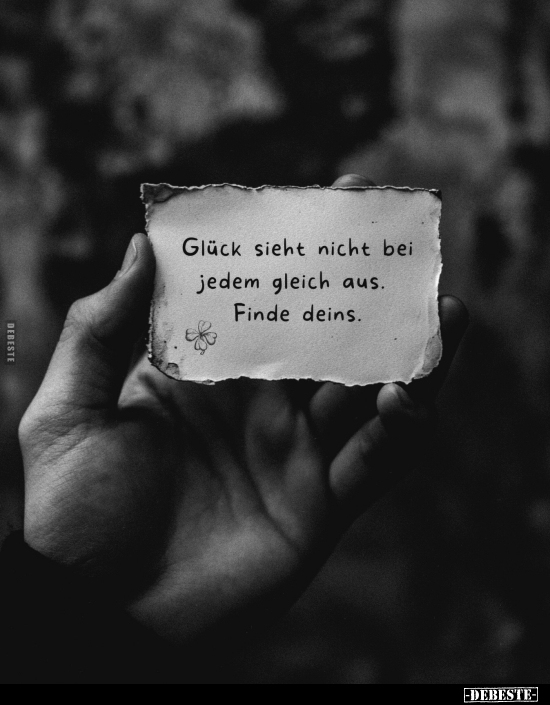 Glück sieht nicht bei
jedem gleich aus.
Finde deins.
DEBESTE
-DEBESTE-